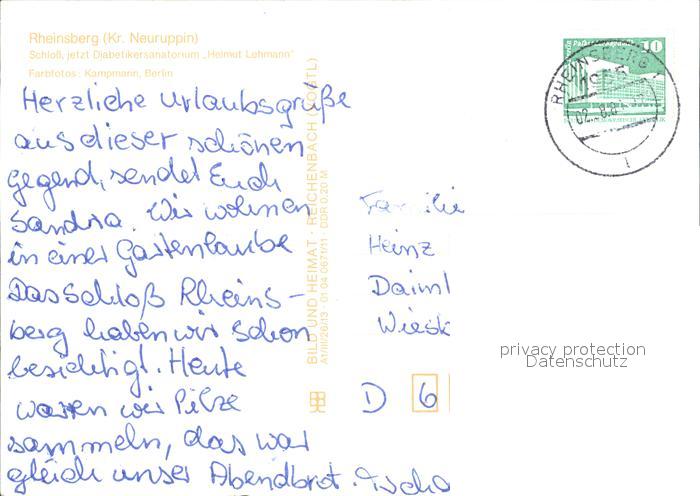 Rheinsberg (Kr. Neuruppin)
Schloß, jetzt Diabetikersanatorium „Helmut Lehmann"
Farbfotos: Kampmann, Berlin
Herzliche Urlaubsgrüße
aus dieser schönen
Gegend, sendet Euch
Sandra. Wir wohnen
in einer Gartenlaube
Das Schloß Rheins-
berg haben wir schon
besichtigt. Heute
waren wir Pilze
sammeln, das war
gleich unser Abendbrot. Tscha
BILD UND HEIMAT · REICHENBACH (VOGTL)
A1/III/26/13 · 01 04 0671/11 · DDR 0,20 M
10
RHEINSBERG
1955
Familie
Heinz
Daiml
Wiesk
D 6
privacy protection
Datenschutz